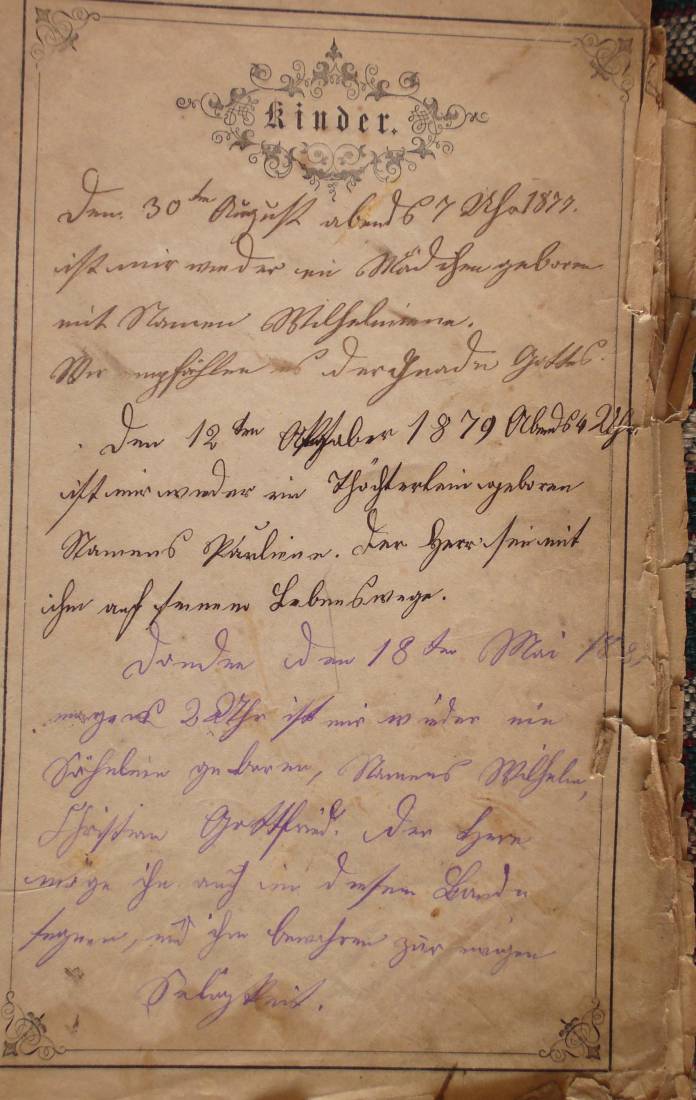 Kinder.
Den 30ten August abends 7 Uhr 1877.
ist mir wieder ein Mädchen geboren
mit Namen Wilhelmiene.
Wir empfählen es der Gnade Gottes.
Den 12ten 1879 Abends 4 Uhr.
ist mir wieder ein Thöchterlein geboren
Namens Pauliene. Der Herr sei mit
ihm auf seinem Lebenswege.
den 18ten Mai
morgens Uhr ist mir wieder ein
Söhnlein geboren, Namens Wilhelm,
Christian Gottfried. Der Herr
möge ihn auch in diesem Lande
segnen, und ihn bewahren zur ewigen
Seligkeit.